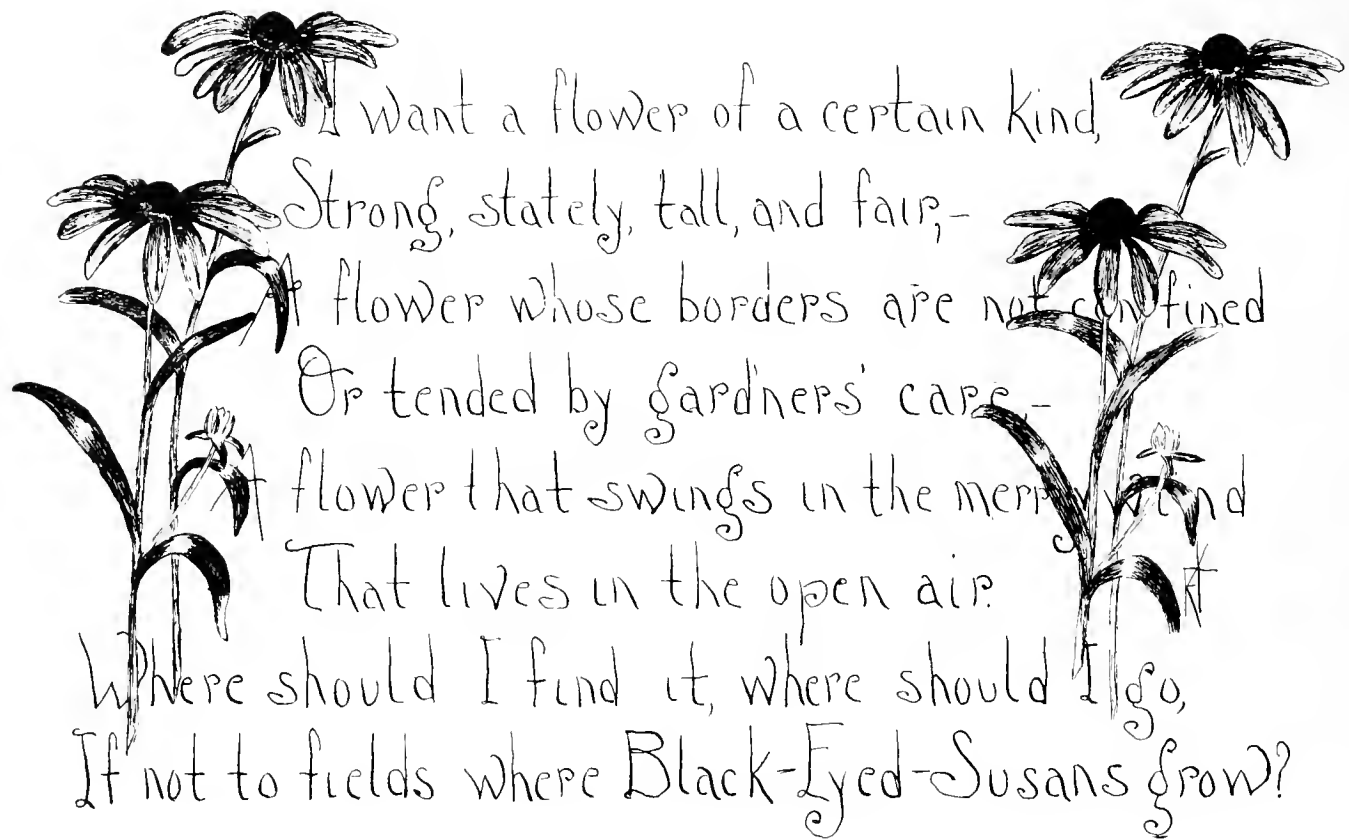 I want a flower of a certain kind,
Strong, stately, tall, and fair,-
A flower whose borders are not confined
Or tended by gard'ners' care,-
A flower that swings in the merry wind
That lives in the open air.
Where should I find it, where should I go,
If not to fields where Black-Eyed-Susans grow?